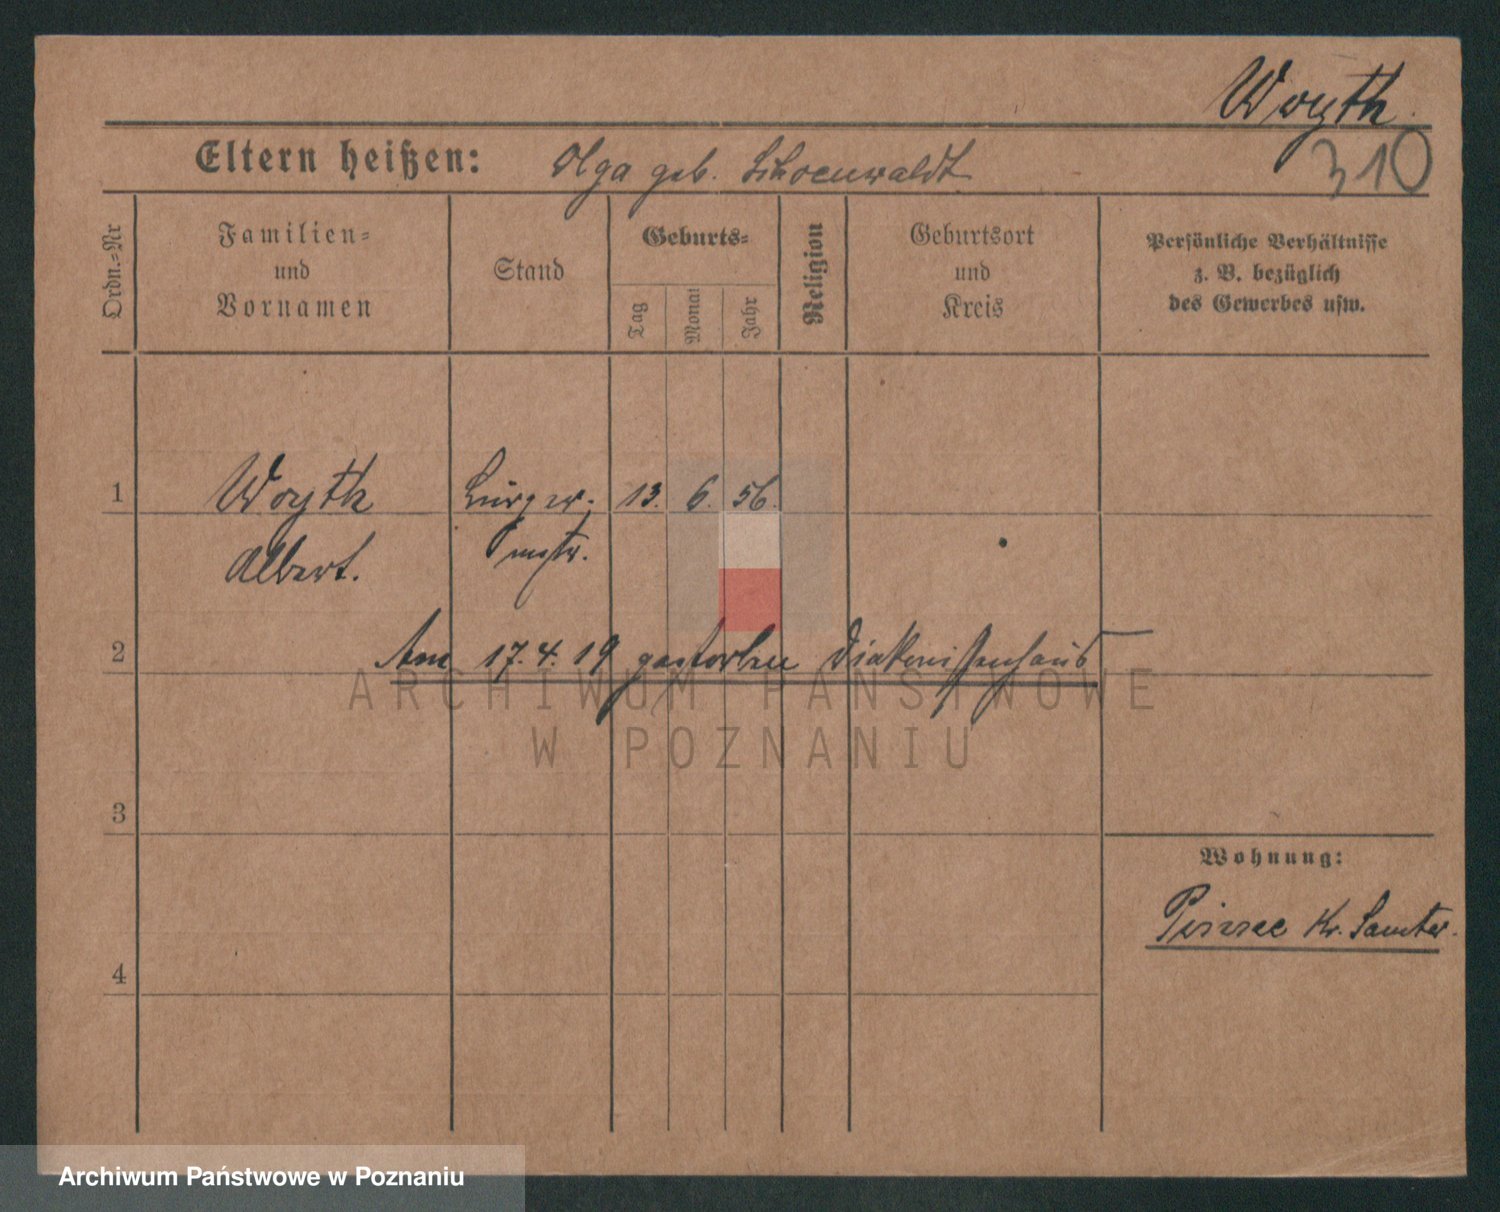 Woyth.
310
Eltern heißen: Olga geb. Schoenwaldt
Ordn.=Nr
Familien=
und
Vornamen
Stand
Geburts=
Tag
Monat
Jahr
Religion
Geburtsort
und
Kreis
Persönliche Verhältnisse
z. B. bezüglich
des Gewerbes usw.
1 Woyth Bürger- 13. 6. 56.
Albert. mstr.
2 Am 17. 4. 19 gestorben Diakonissenhaus
ARCHIWUM PAŃSTWOWE
W POZNANIU
3
Wohnung:
Kr. Samter.
4
Archiwum Państwowe w Poznaniu